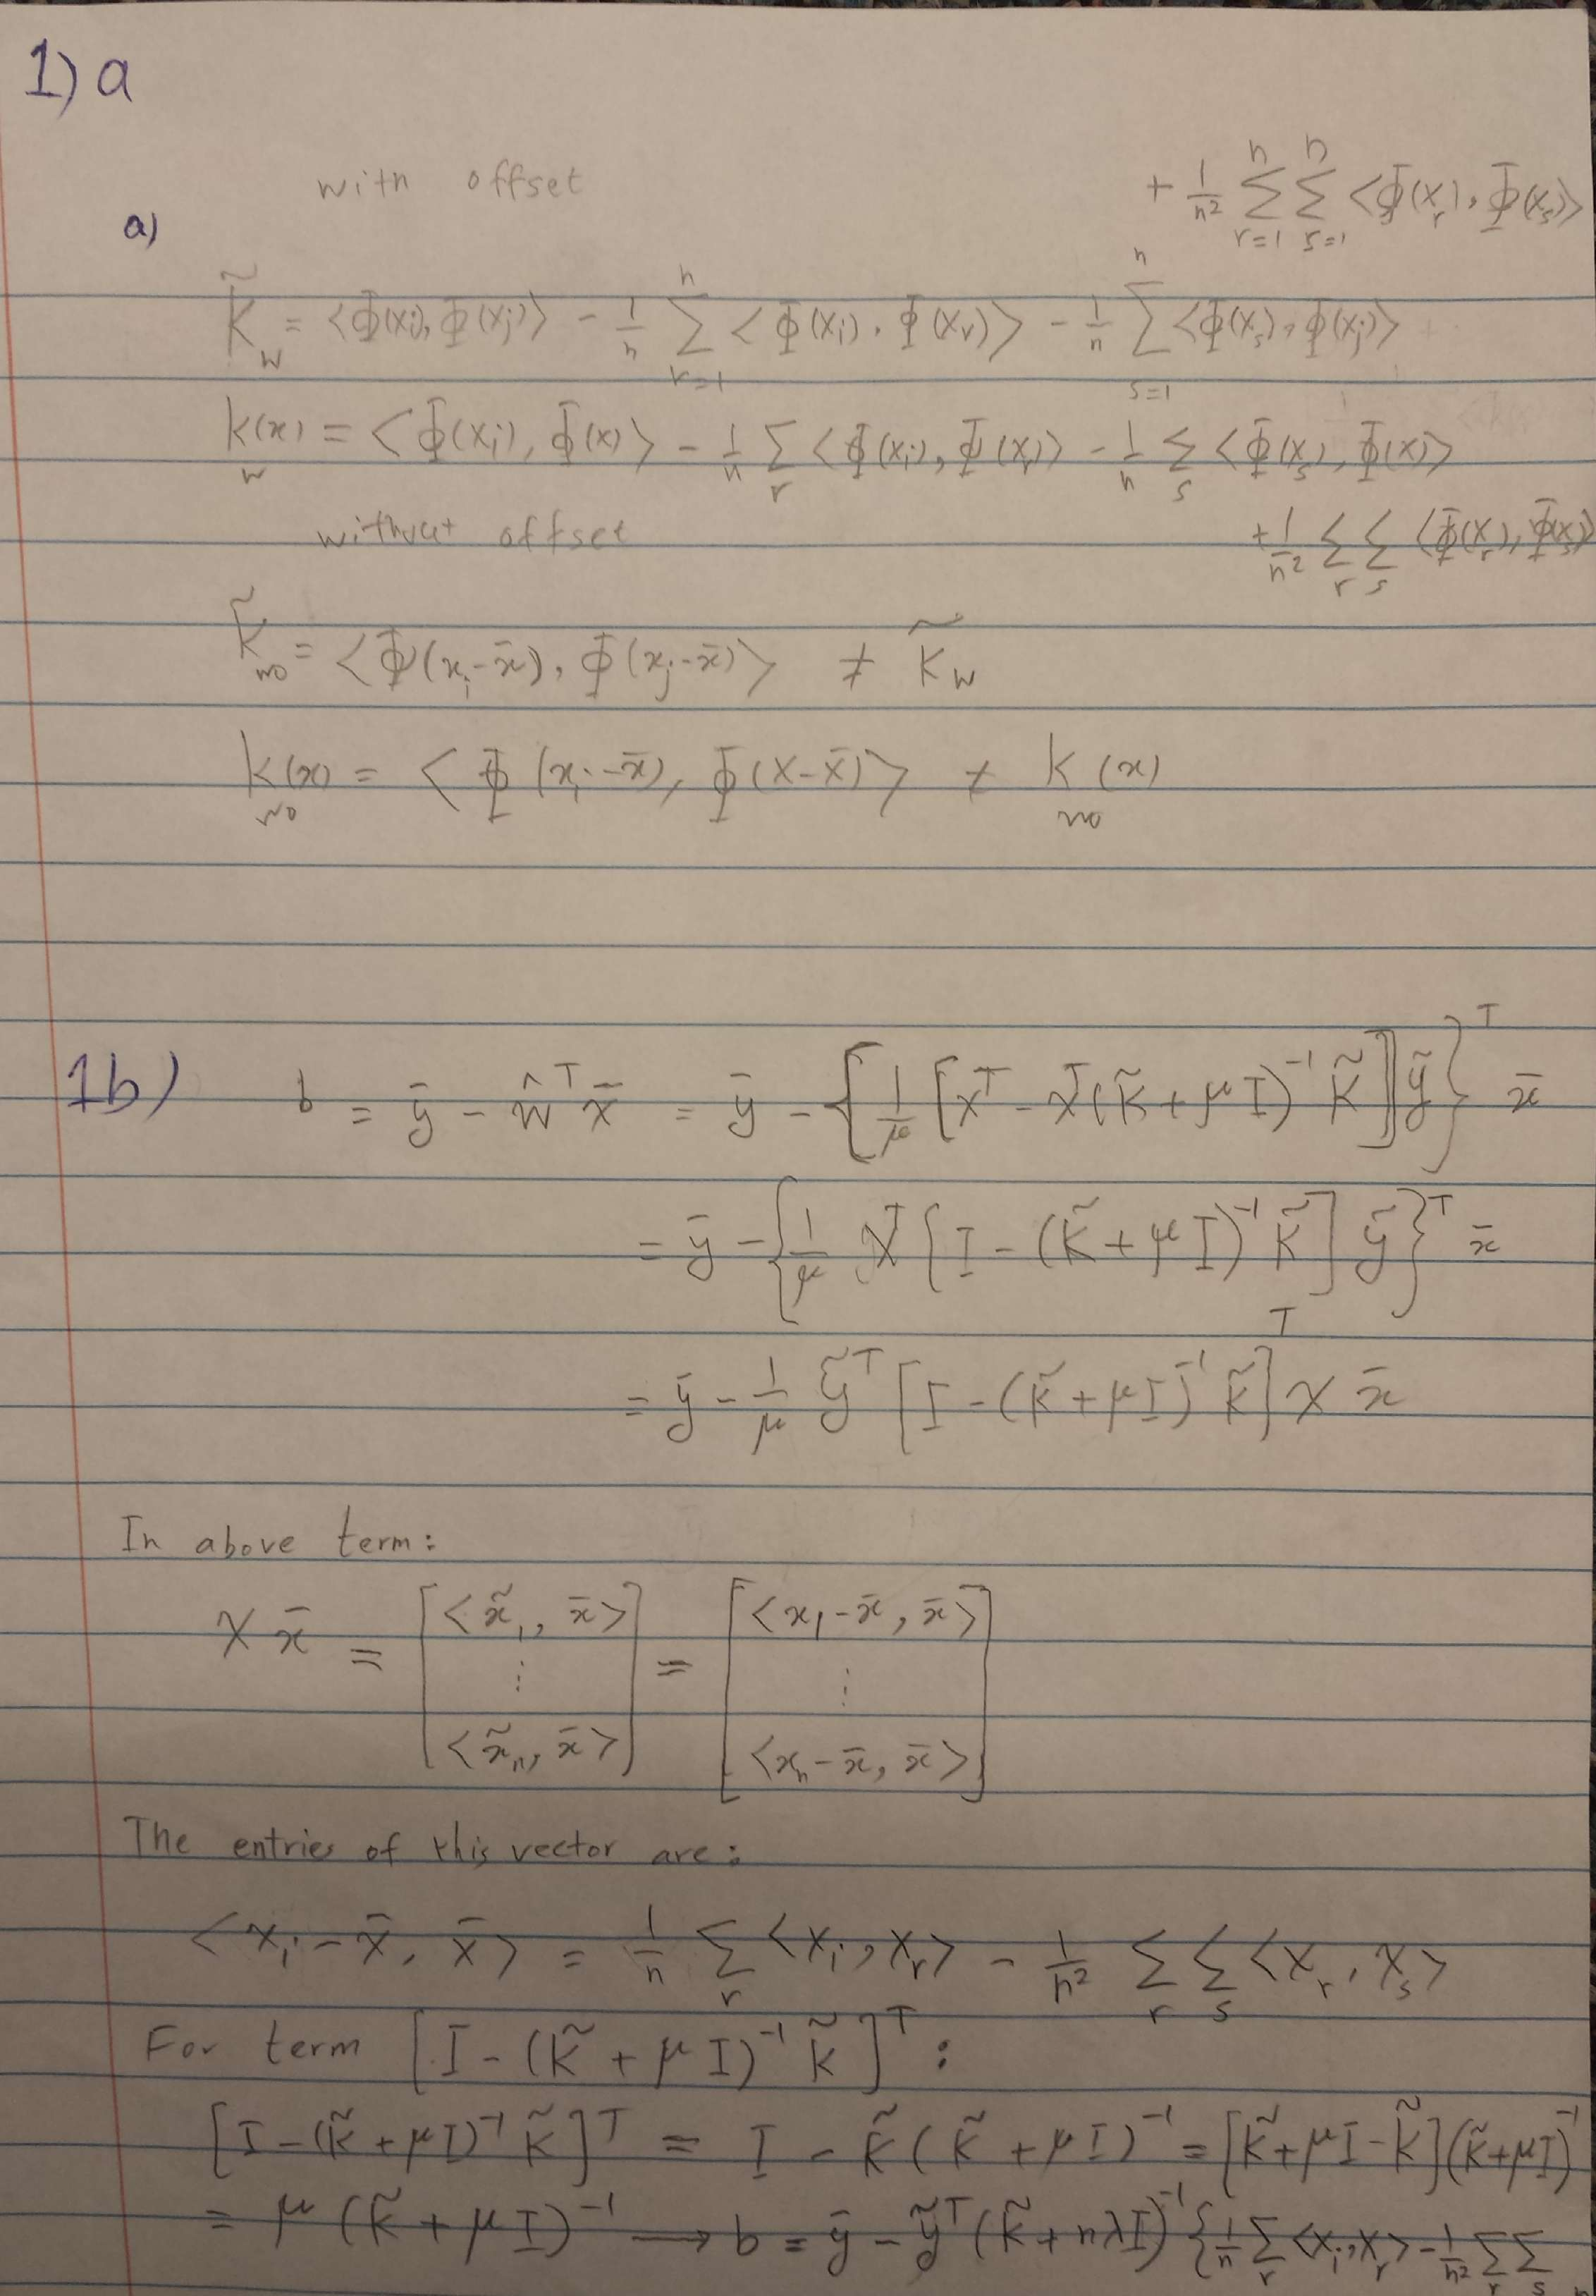 1) a
with offset
+ 1/n² Σ_{r=1}^{n} Σ_{s=1}^{n} <Φ(x_r), Φ(x_s)>
a)
K̃_w = <Φ(x_i), Φ(x_j)> - 1/n Σ_{r=1}^{n} <Φ(x_i), Φ(x_r)> - 1/n Σ_{s=1}^{n} <Φ(x_s), Φ(x_j)>
k_w(x) = <Φ(x_i), Φ(x)> - 1/n Σ_r <Φ(x_i), Φ(x_r)> - 1/n Σ_s <Φ(x_s), Φ(x)>
+ 1/n² Σ_r Σ_s <Φ(x_r), Φ(x_s)>
without offset
K̃_wo = <Φ(x_i - x̄), Φ(x_j - x̄)> ≠ K̃_w
k_wo(x) = <Φ(x_i - x̄), Φ(x - x̄)> ≠ k_wo(x)
1b) b = ȳ - ŵ^T x̄ = ȳ - {1/μ [X^T - X^T(K̃ + μI)^{-1} K̃] ỹ}^T x̄
= ȳ - {1/μ X^T [I - (K̃ + μI)^{-1} K̃] ỹ}^T x̄
= ȳ - 1/μ ỹ^T [I - (K̃ + μI)^{-1} K̃]^T X x̄
In above term:
X x̄ = [<x̃_1, x̄> ⋮ <x̃_n, x̄>] = [<x_1 - x̄, x̄> ⋮ <x_n - x̄, x̄>]
The entries of this vector are:
<x_i - x̄, x̄> = 1/n Σ_r <x_i, x_r> - 1/n² Σ_r Σ_s <x_r, x_s>
For term [I - (K̃ + μI)^{-1} K̃]^T :
[I - (K̃ + μI)^{-1} K̃]^T = I - K̃(K̃ + μI)^{-1} = [K̃ + μI - K̃](K̃ + μI)^{-1}
= μ(K̃ + μI)^{-1} → b = ȳ - ỹ^T(K̃ + nλI)^{-1} {1/n Σ_r <x_i, x_r> - 1/n² Σ_r Σ_s